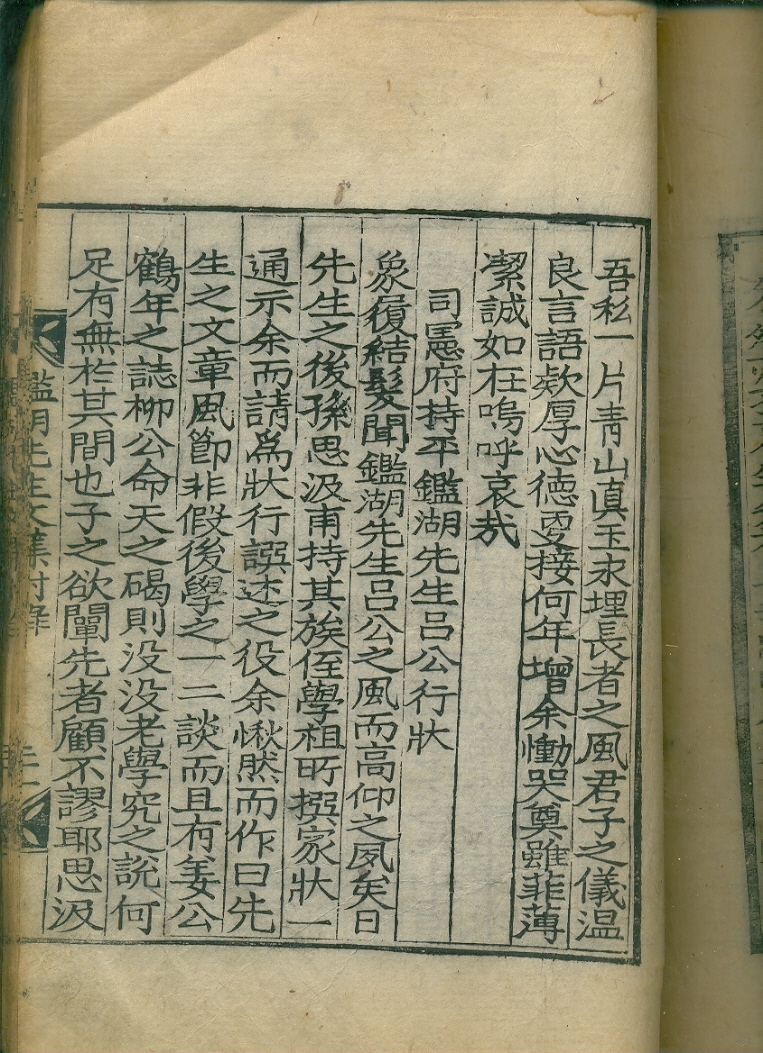 吾私一片靑山眞玉永埋長者之風君子之儀溫
良言語欵厚心德更接何年增余慟哭奠雖菲薄
潔誠如在嗚呼哀哉
司憲府持平鑑湖先生呂公行狀
象履結髮聞鑑湖先生呂公之風而高仰之夙矣日
先生之後孫思汲甫持其族侄學祖所撰家狀一
通示余而請爲狀行譔述之役余愀然而作曰先
生之文章風節非假後學之一二談而且有姜公
鶴年之誌柳公命天之碣則沒沒老學究之說何
足有無於其間也子之欲闡先者顧不謬耶思汲
鑑湖先生文集附彔